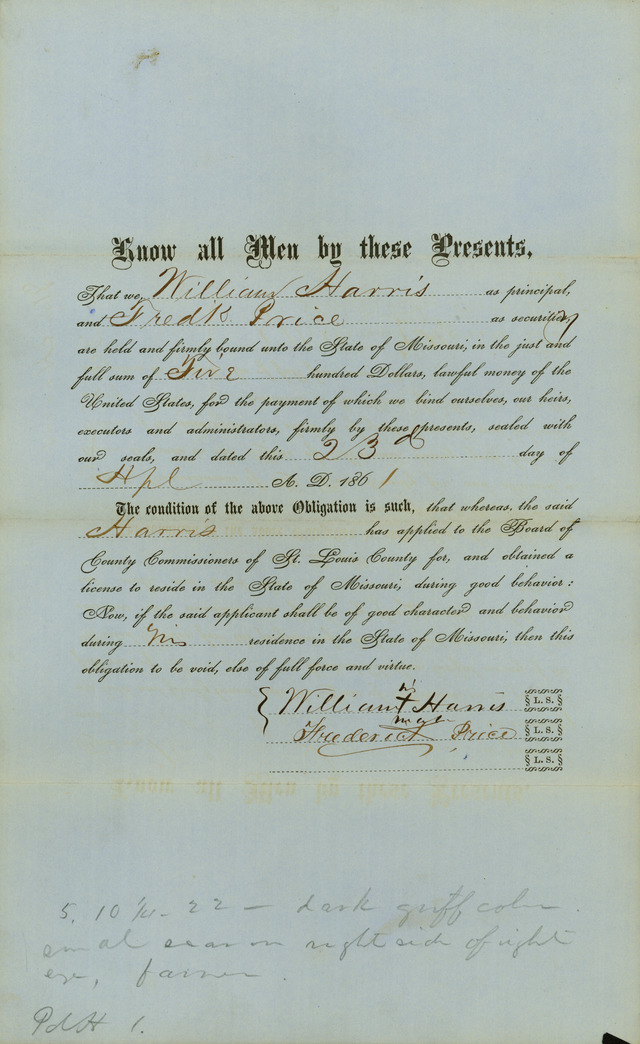 Know all Men by these Presents,
That we, William Harris as principal,
and Fredk Price as securities,
are held and firmly bound unto the State of Missouri, in the just and
full sum of Five hundred Dollars, lawful money of the
United States, for the payment of which we bind ourselves, our heirs,
executors and administrators, firmly by these presents, sealed with
our seals, and dated this 23d day of
Apl A. D. 1861
The condition of the above Obligation is such, that whereas, the said
Harris has applied to the Board of
County Commissioners of St. Louis County for, and obtained a
license to reside in the State of Missouri, during good behavior:
Now, if the said applicant shall be of good character and behavior
during his residence in the State of Missouri, then this
obligation to be void, else of full force and virtue.
his
William + Harris L. S.
mark
Frederick Price L. S.
L. S.
5. 10 22 — dark griff color.
small scar on right side of right
eye, farmer.
1.